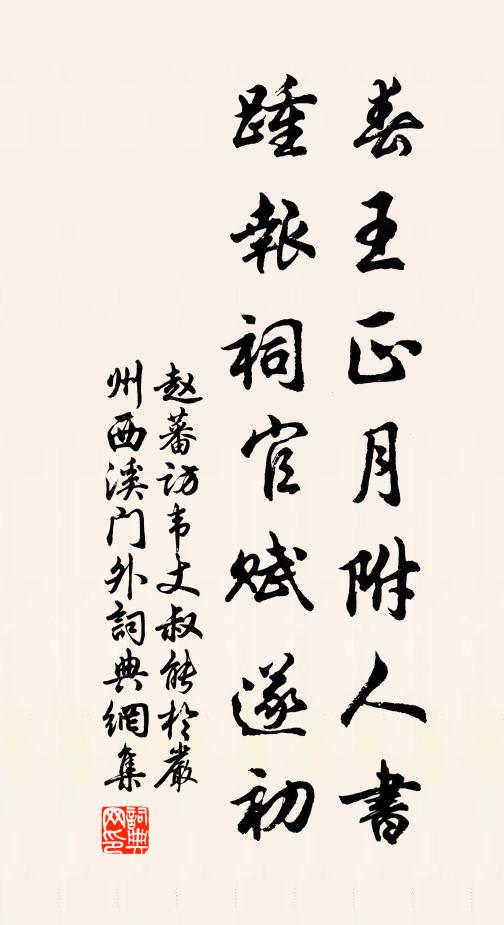 春王正月附人書
踵報祠官賦遂初
赵蕃访韦丈叔能於嚴
州西溪门外詞典網集
詞典网印